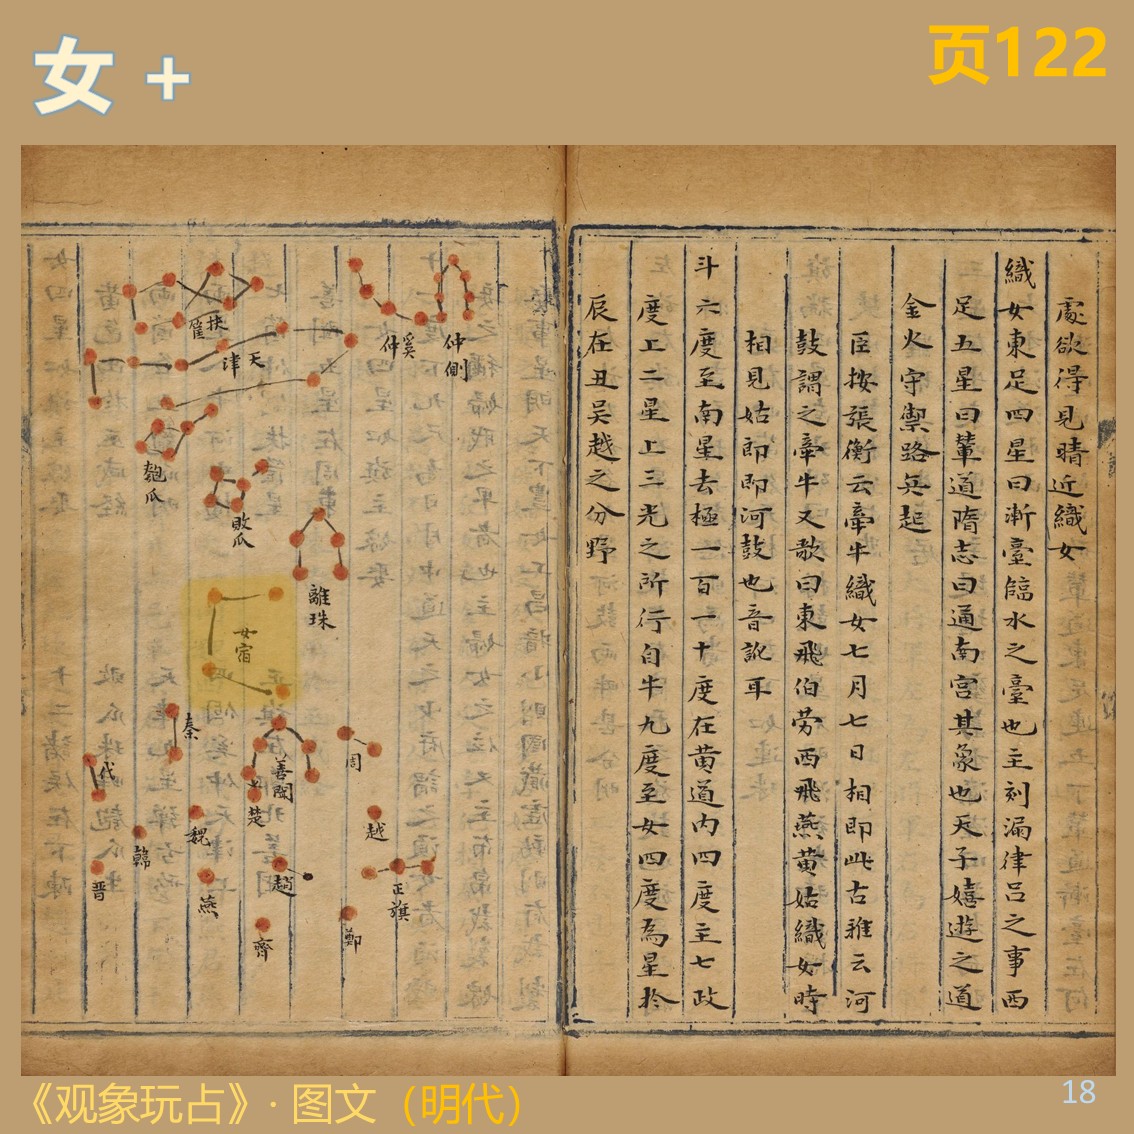 女 +
页122
處欲得見晴近織女
織女東足四星曰漸臺臨水之臺也主刻漏律呂之事西
足五星曰輦道隋志曰通南宮其象也天子嬉遊之道
金火守禦路兵起
臣按張衡云牽牛織女七月七日相即此古雅云河
鼓謂之牽牛又歌曰東飛伯勞西飛燕黄姑織女時
相見姑即即河鼓也音訛耳
斗六度至南星去極一百一十度在黄道内四度主七政
度工二星上三光之所行自牛九度至女四度為星於
辰在丑吳越之分野
仲側
奚仲
扶筐
天津
匏瓜
敗瓜
離珠
女宿
秦
代
善閑
周
楚
魏
越
韓
晋
燕
趙
正旗
齊
鄭
《观象玩占》· 图文（明代）
18